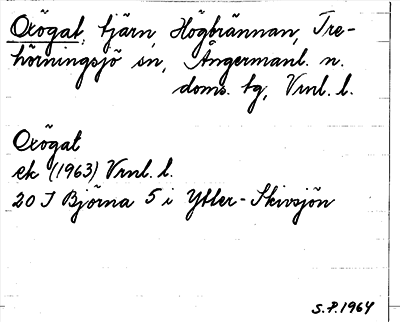 Oxögat, tjärn, Högbrännan, Tre-
hörningsjö sn, Ångermanl. n.
doms. tg, Vrnl. l.
Oxögat
ek (1963) Vrnl. l.
20 J Björna 5 i Ytter-Skivsjön
S.P.1964